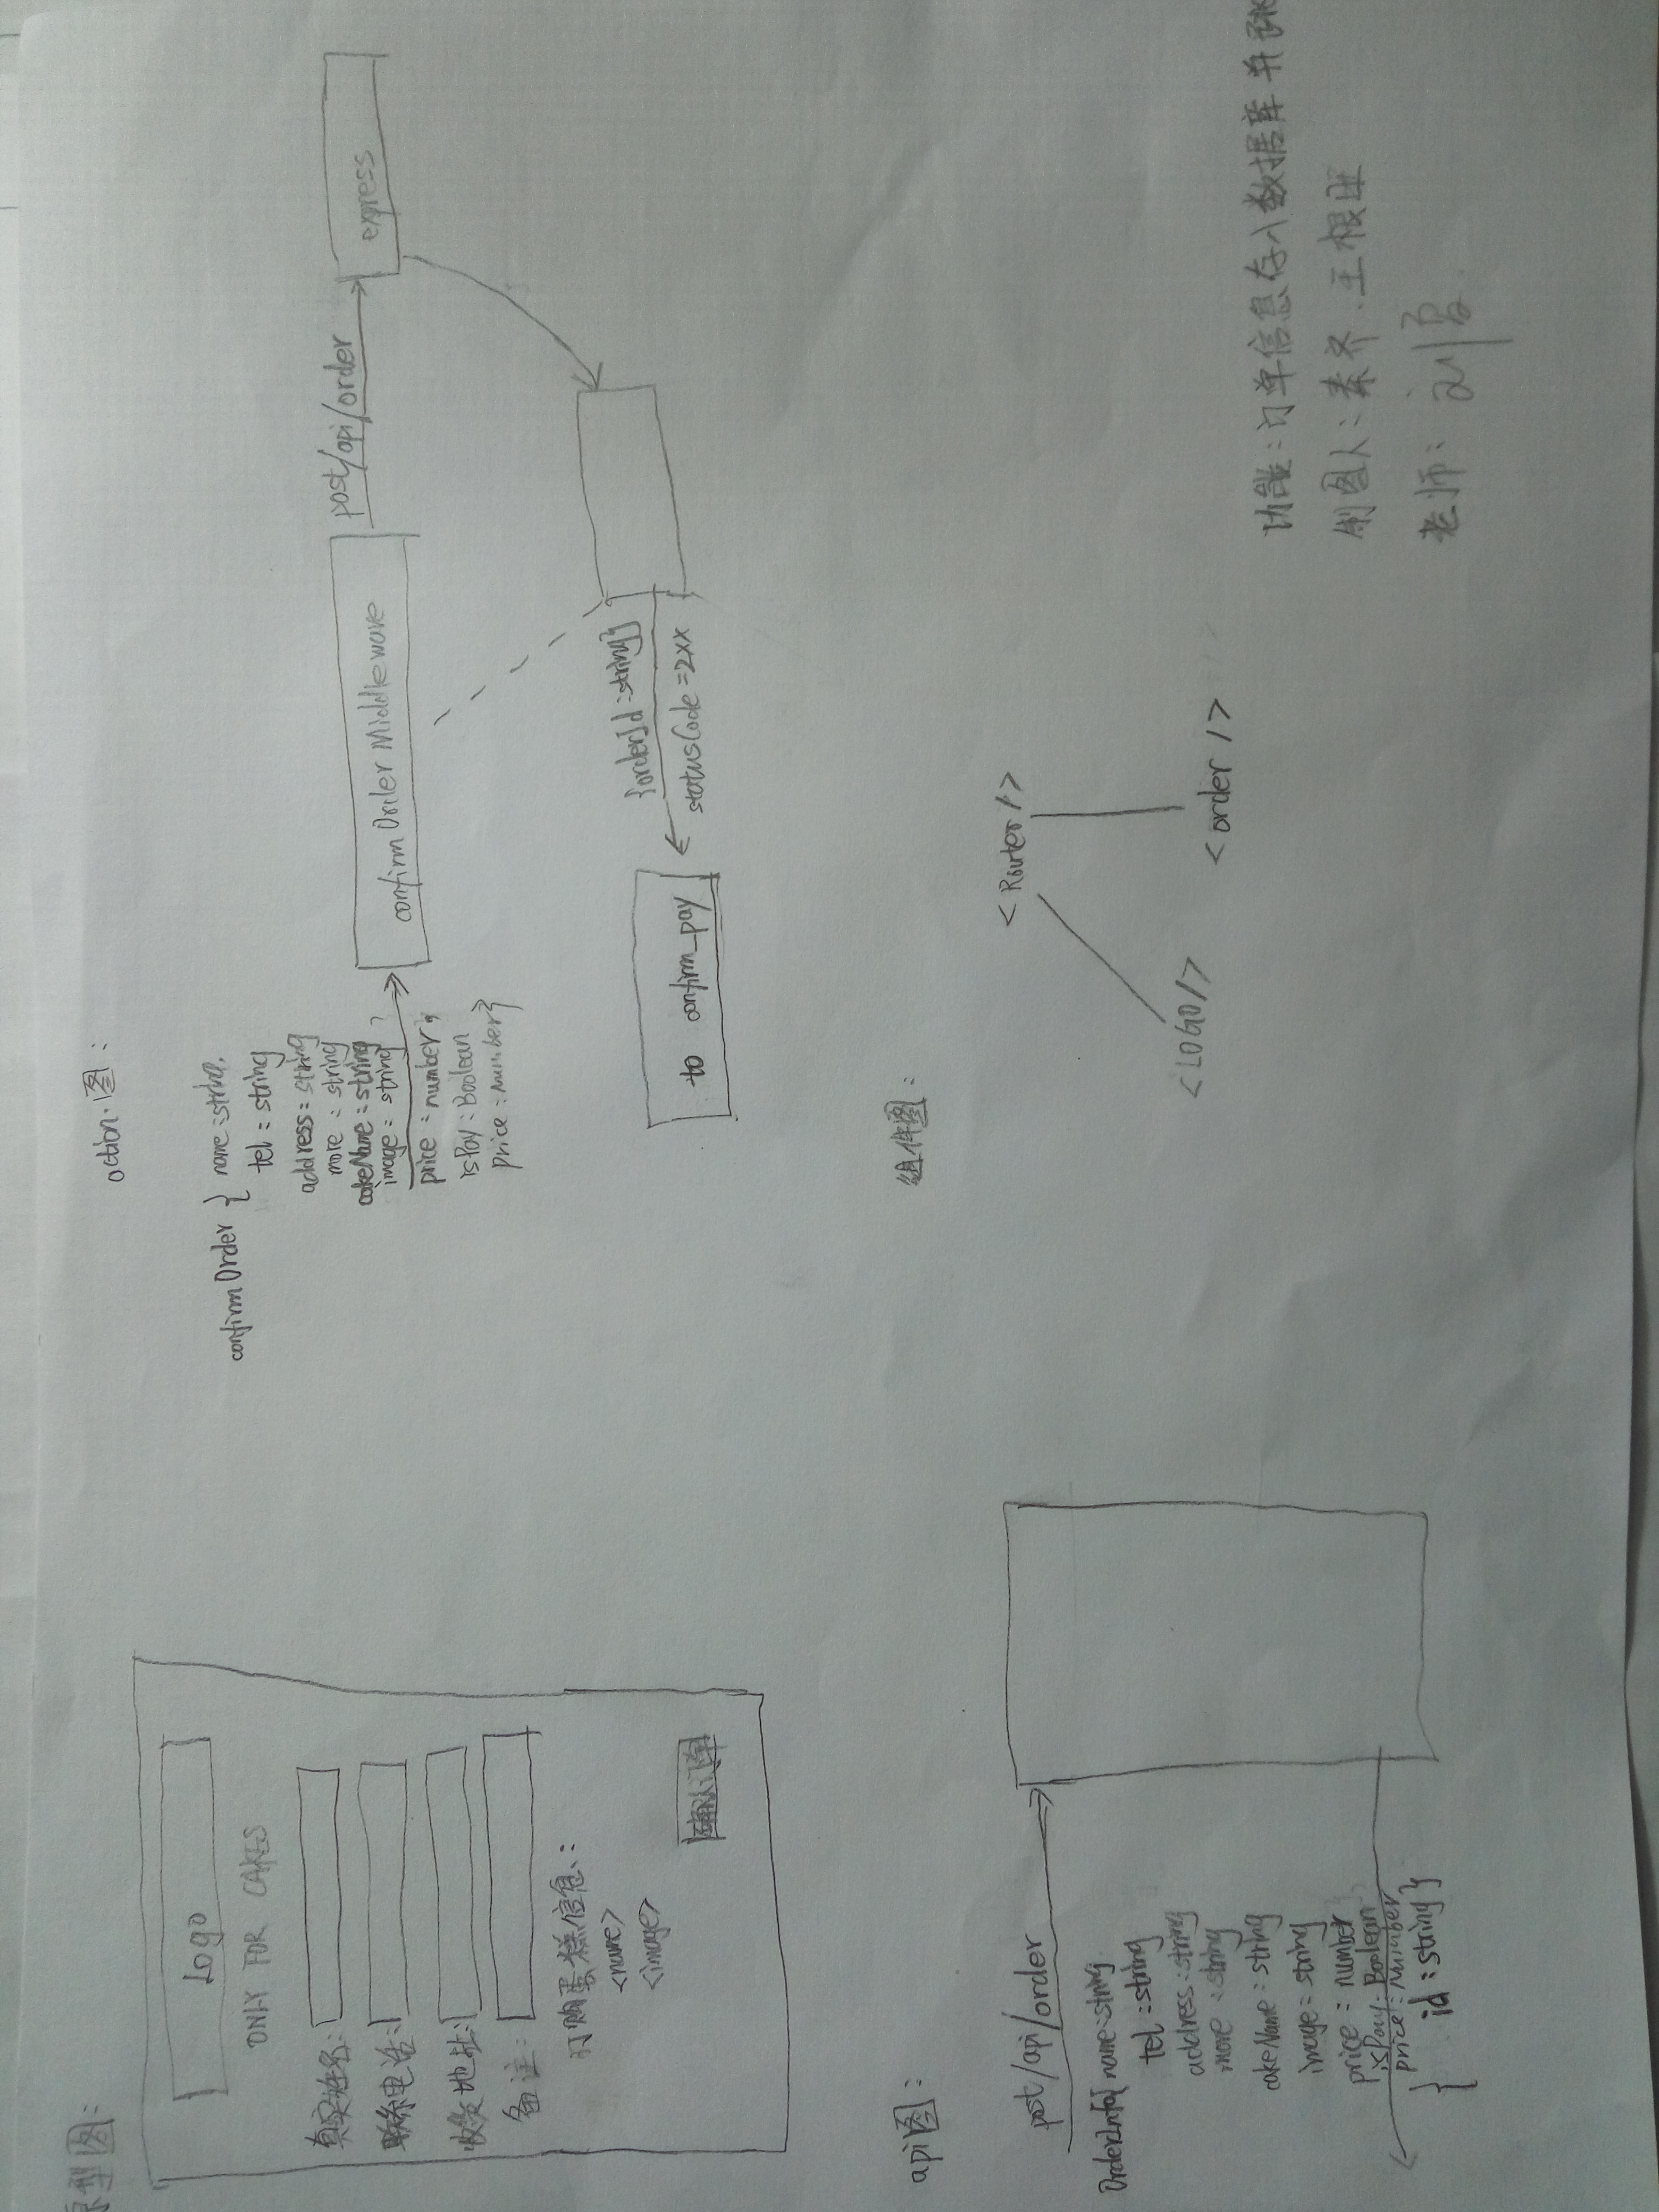 原型图:
Logo
ONLY FOR CAKES
真实姓名:
联系电话:
收货地址:
备注:
订购蛋糕信息:
<name>
<image>
确认订单
action图:
confirmOrder { name:string,
tel:string
address:string
more:string
cakeName:string
image:string,
price:number,
isPay:Boolean
price:number}
confirmOrderMiddleware
post/api/order
express
{orderId:string}
statusCode=2xx
to confirm_pay
api图:
post/api/order
OrderInfo{name:string
tel:string
address:string
more:string
cakeName:string
image:string
price:number
isPay:Boolean
price:Number
}
{ id:string}
组件图:
<Router/>
<LOGO/>
<order/>
功能:订单信息存入数据库并
制图人:秦齐.王根
老师: